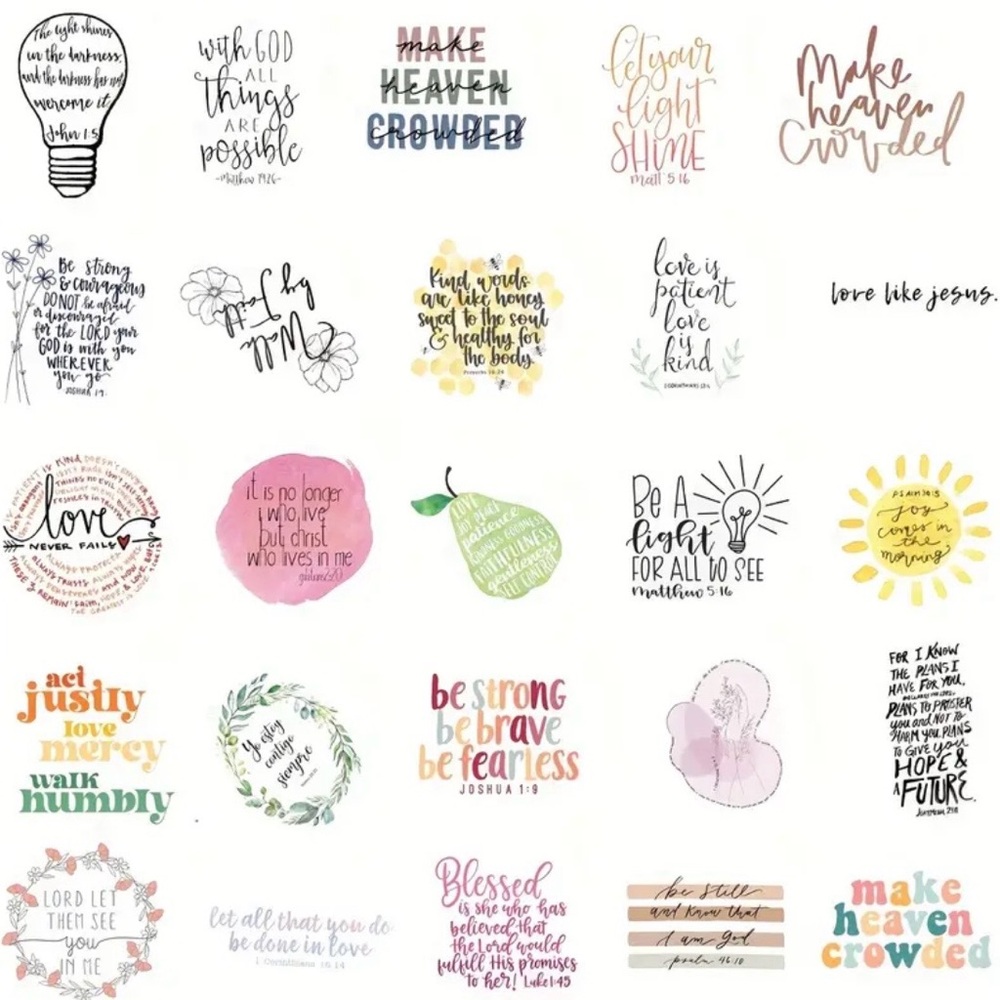 The light shines
in the darkness,
and the darkness has not
overcome it.
John 1:5
with GOD
ALL
Things
ARE
possible
-Matthew 19:26-
MAKE
make
HEAVEN
heaven
CROWDED
crowded
let your
light
SHINE
Matt 5:16
Make
heaven
Crowded
Be strong
& courageous
DO NOT be afraid
or discouraged
for the LORD your
GOD is with you
WHEREVER
you go
JOSHUA 1:9
Walk
by Faith
Kind words
are like honey
sweet to the soul
& healthy for
the body.
Proverbs 16:24
love is
patient
love
is
kind
love like jesus.
love
NEVER FAILS
it is no longer
i who live
but christ
who lives in me
galatians 2:20
LOVE
JOY PEACE
patience
KINDNESS GOODNESS
FAITHFULNESS
gentleness
SELF CONTROL
BE A
light
FOR ALL to SEE
Matthew 5:16
PSALM 30:5
joy
comes in
the
morning
act
justly
love
mercy
walk
humbly
Yo estoy
contigo
siempre
be strong
be brave
be fearless
JOSHUA 1:9
FOR I KNOW
THE PLANS I
HAVE FOR YOU,
PLANS TO PROSPER
you and NOT TO
HARM YOU, PLANS
TO GIVE you
HOPE &
A FUTURE.
Jeremiah 29:11
LORD LET
THEM SEE
you
IN ME
let all that you do
be done in love
1 Corinthians 16:14
Blessed
is she who has
believed that
the Lord would
fulfill His promises
to her! Luke 1:45
be still
and know that
I am God
psalm 46:10
make
heaven
crowded